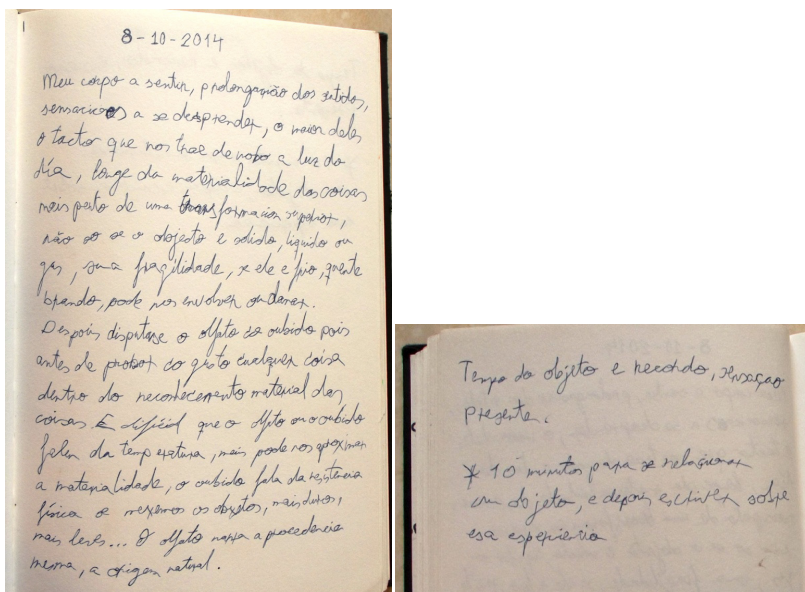 8-10-2014
Meu corpo a sentir, prolongação dos sentidos,
sensaciones a se desprender, o maior deles
o tacto que nos trae de nobo a luz do
día, longe da materialidade das coisas
mais perto de uma transformacion superior,
não so se o objecto e solido, liquido ou
gas, sua fragilidade, se ele e frio, quente
brando, pode nos envolver ou danar.
Despois disputase o olfato co oubido pois
antes de probar co gusto cualquer coisa
dentro do reconhecemento material das
coisas. E dificial que o olfato ou o oubido
falen da temperatura, mais pode nos aproximar
a materialidade, o oubido fala da resistencia
física se mexemos os objetos, mais duros,
mais leves... O olfato narra a procedencia
mesma, a origem natural.
Tempo do objeto e recordo, sensação
presente.
* 10 minutos para se relacionar
um objeto, e depois escriver sobre
esa esperiencia